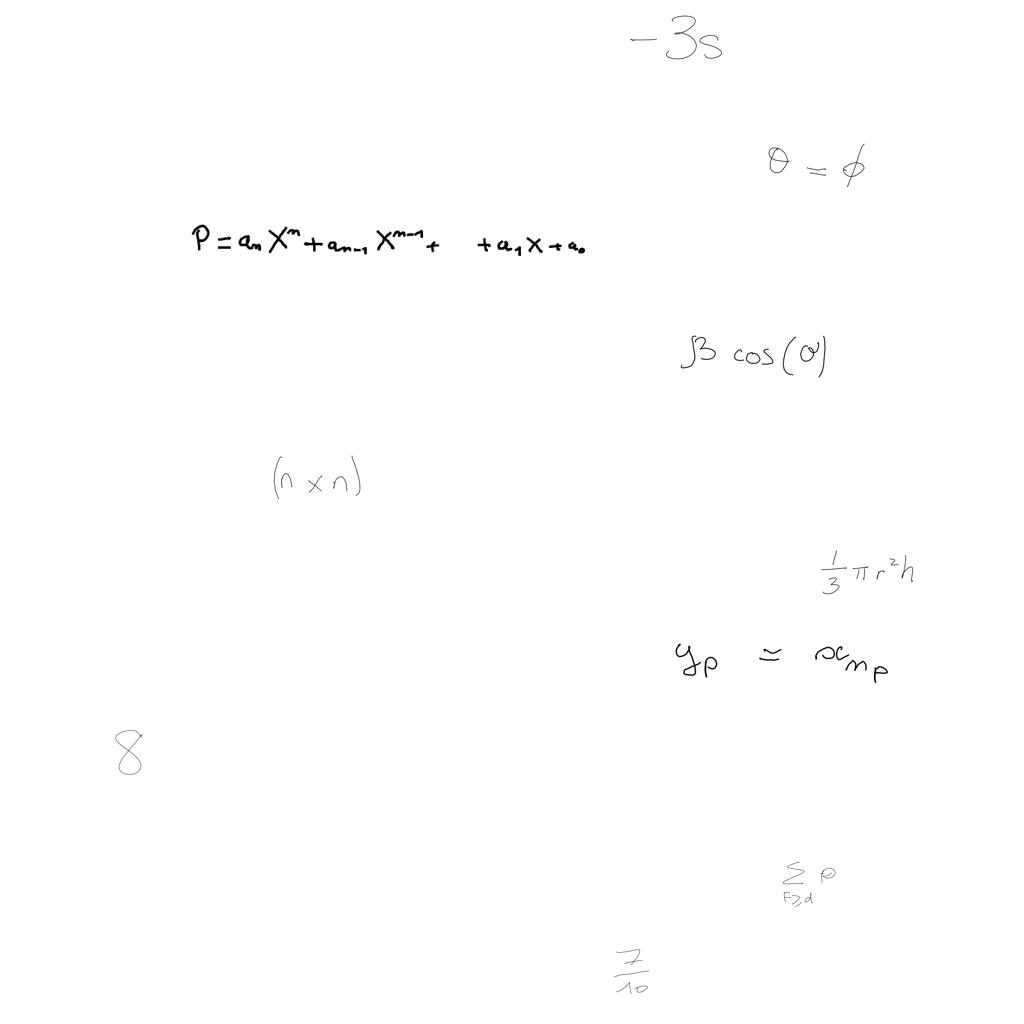 -3s
θ = ϕ
P = aₙXⁿ + aₙ₋₁Xⁿ⁻¹ + + a₁X + a₀
β cos(θ)
(n × n)
1/3 πr²h
yₚ ≃ xₙₚ
8
∑_{F⩾d} p
7/10